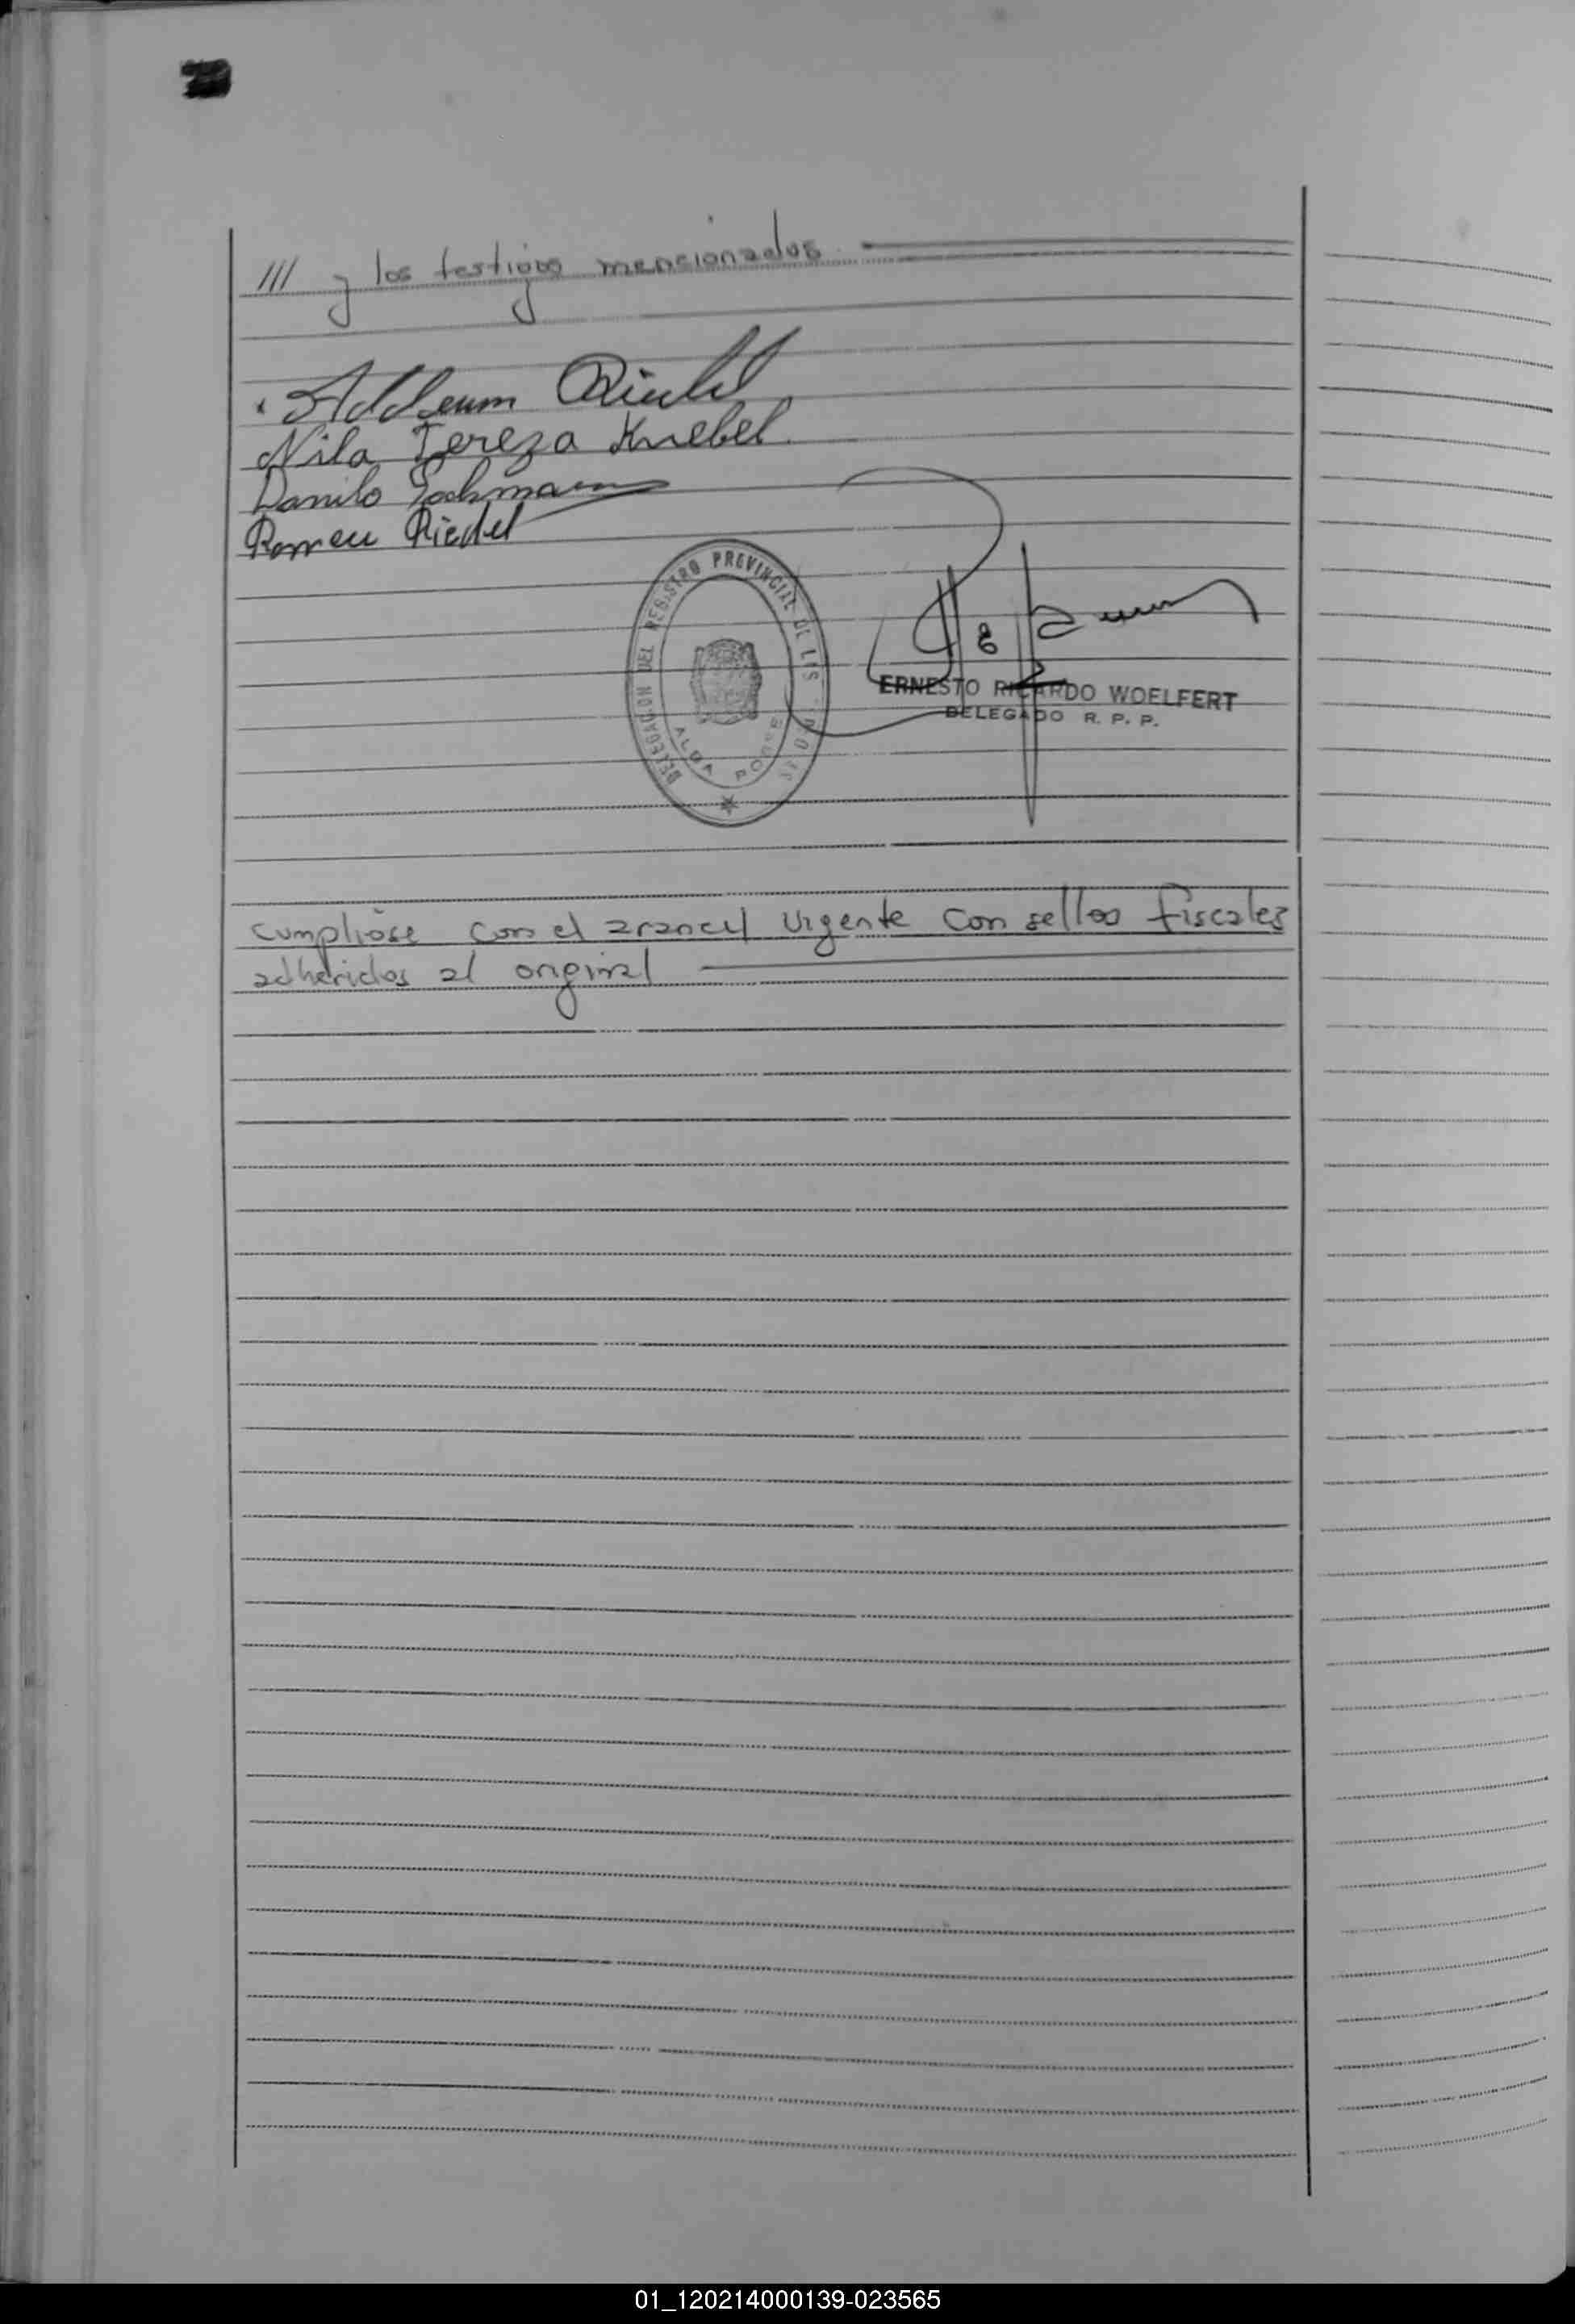 /// y los testigos mencionados
Riedel
Nila Tereza Knebel
Danilo
Romeu Riedel
DELEGACION DEL REGISTRO PROVINCIAL DE LAS
ALBA POSSE
ERNESTO RICARDO WOELFERT
DELEGADO R. P. P.
cumpliose con el arancel urgente con sellos fiscales
adheridos al original
01_120214000139-023565